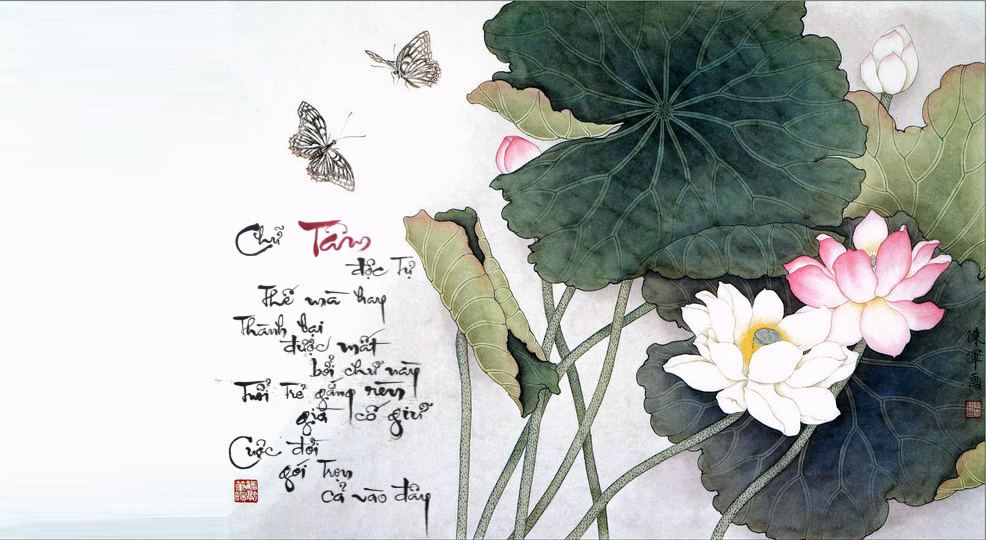 Chữ Tâm
độc tự
thế mà hay
Thành bại
được mất
bởi chữ này
Tuổi trẻ gắng rèn
già cố giữ
Cuộc đời
gói trọn
cả vào đây
陳軍画